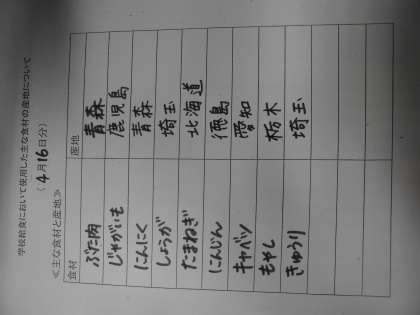 学校給食において使用した主な食材の産地について
(4月16日分)
≪主な食材と産地≫
食材 産地
ぶた肉 青森
じゃがいも 鹿児島
にんにく 青森
しょうが 埼玉
たまねぎ 北海道
にんじん 徳島
キャベツ 愛知
もやし 栃木
きゅうり 埼玉